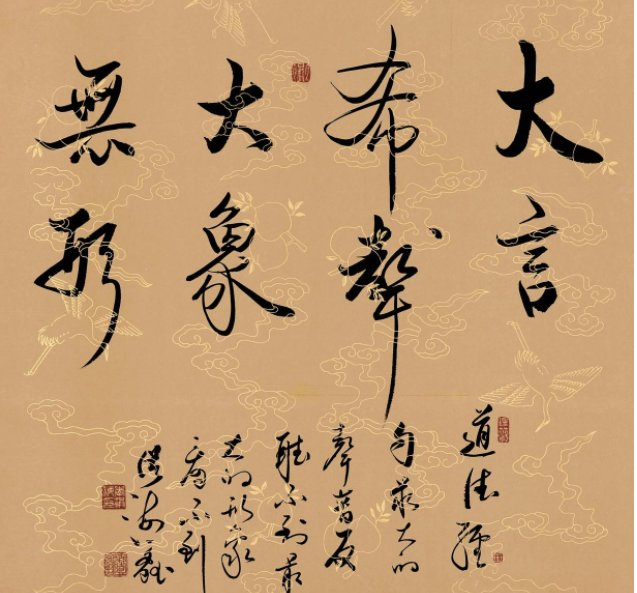 大言
希聲
大象
無形
道德經
句最大的
聲音反
聽不到最
大的形象
看不到